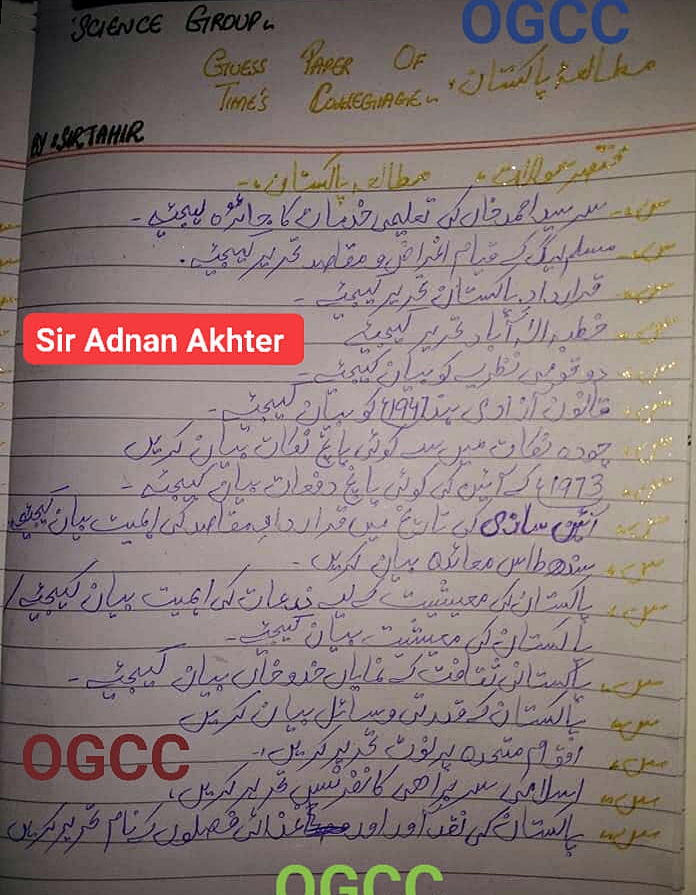 SCIENCE GROUP
OGCC
GUESS PAPER OF
مطالعہ پاکستان
TIME'S COLLEGIAGE
BY SIR TAHIR
مختصر سوالات مطالعہ پاکستان
س سر سید احمد خان کی تعلیمی خدمات کا جائزہ لیجیئے۔
س مسلم لیگ کے قیام اغراض و مقاصد تحریر کیجیئے۔
س قرارداد پاکستان تحریر کیجیئے۔
س خطبہ الہٰ آباد تحریر کیجیئے
Sir Adnan Akhter
س دو قومی نظریہ کو بیان کیجیئے۔
س قانون آزادی ہند 1947ء کو بیان کیجیئے۔
س چودہ نکات میں سے کوئی پانچ نکات بیان کریں
س 1973ء کے آئین کی کوئی پانچ دفعات بیان کیجیئے۔
س آئین سازی کی تاریخ میں قرارداد مقاصد کی اہمیت بیان کیجیئے
س سندھ طاس معاہدہ بیان کریں۔
س پاکستان کی معیشیت کے لیے زرعات کی اہمیت بیان کیجیئے/
پاکستان کی معیشیت بیان کیجیئے۔
س پاکستانی ثقافت کے نمایاں خدوخال بیان کیجیئے۔
س پاکستان کے قدرتی وسائل بیان کریں
س اقوام متحدہ پر نوٹ تحریر کریں۔
OGCC
س اسلامی سربراہی کانفرنس تحریر کریں۔
س پاکستان کی نقد آور اور غذائی فصلوں کے نام تحریر کریں
OGCC